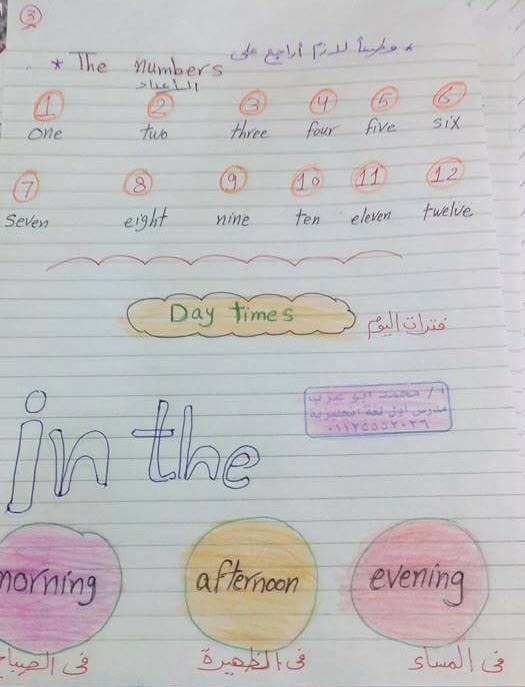 3
* وطبعاً لازم أراجع على *
* The numbers
الأعداد
1 2 3 4 5 6
one two three four five six
7 8 9 10 11 12
seven eight nine ten eleven twelve
Day times
فترات اليوم
أ / محمد ابو عرب
مدرس اول لغة انجليزية
٠١١٢٥٥٥٢٠٢٦
in the
morning afternoon evening
فى الصباح فى الظهيرة فى المساء